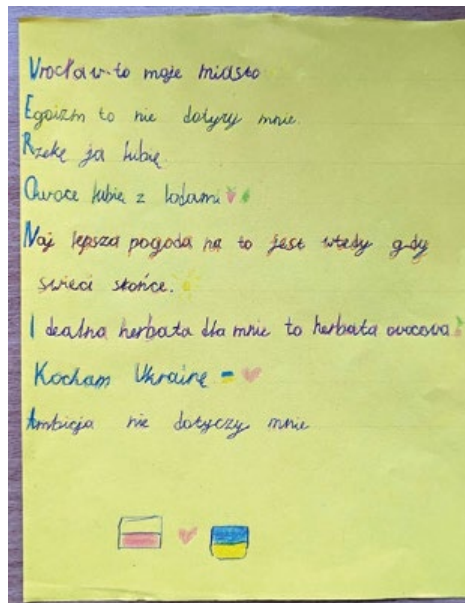 Vrocław-to moje miasto
Egoizm to nie dotyzy mnie.
Rzekę ja lubię.
Owoce lubię z lodami
Naj lepsza pogoda na to jest wtedy gdy
świeci słońce.
Idealna herbata dla mnie to herbata owocova
Kocham Ukrainę
Ambicja nie dotyczy mnie.